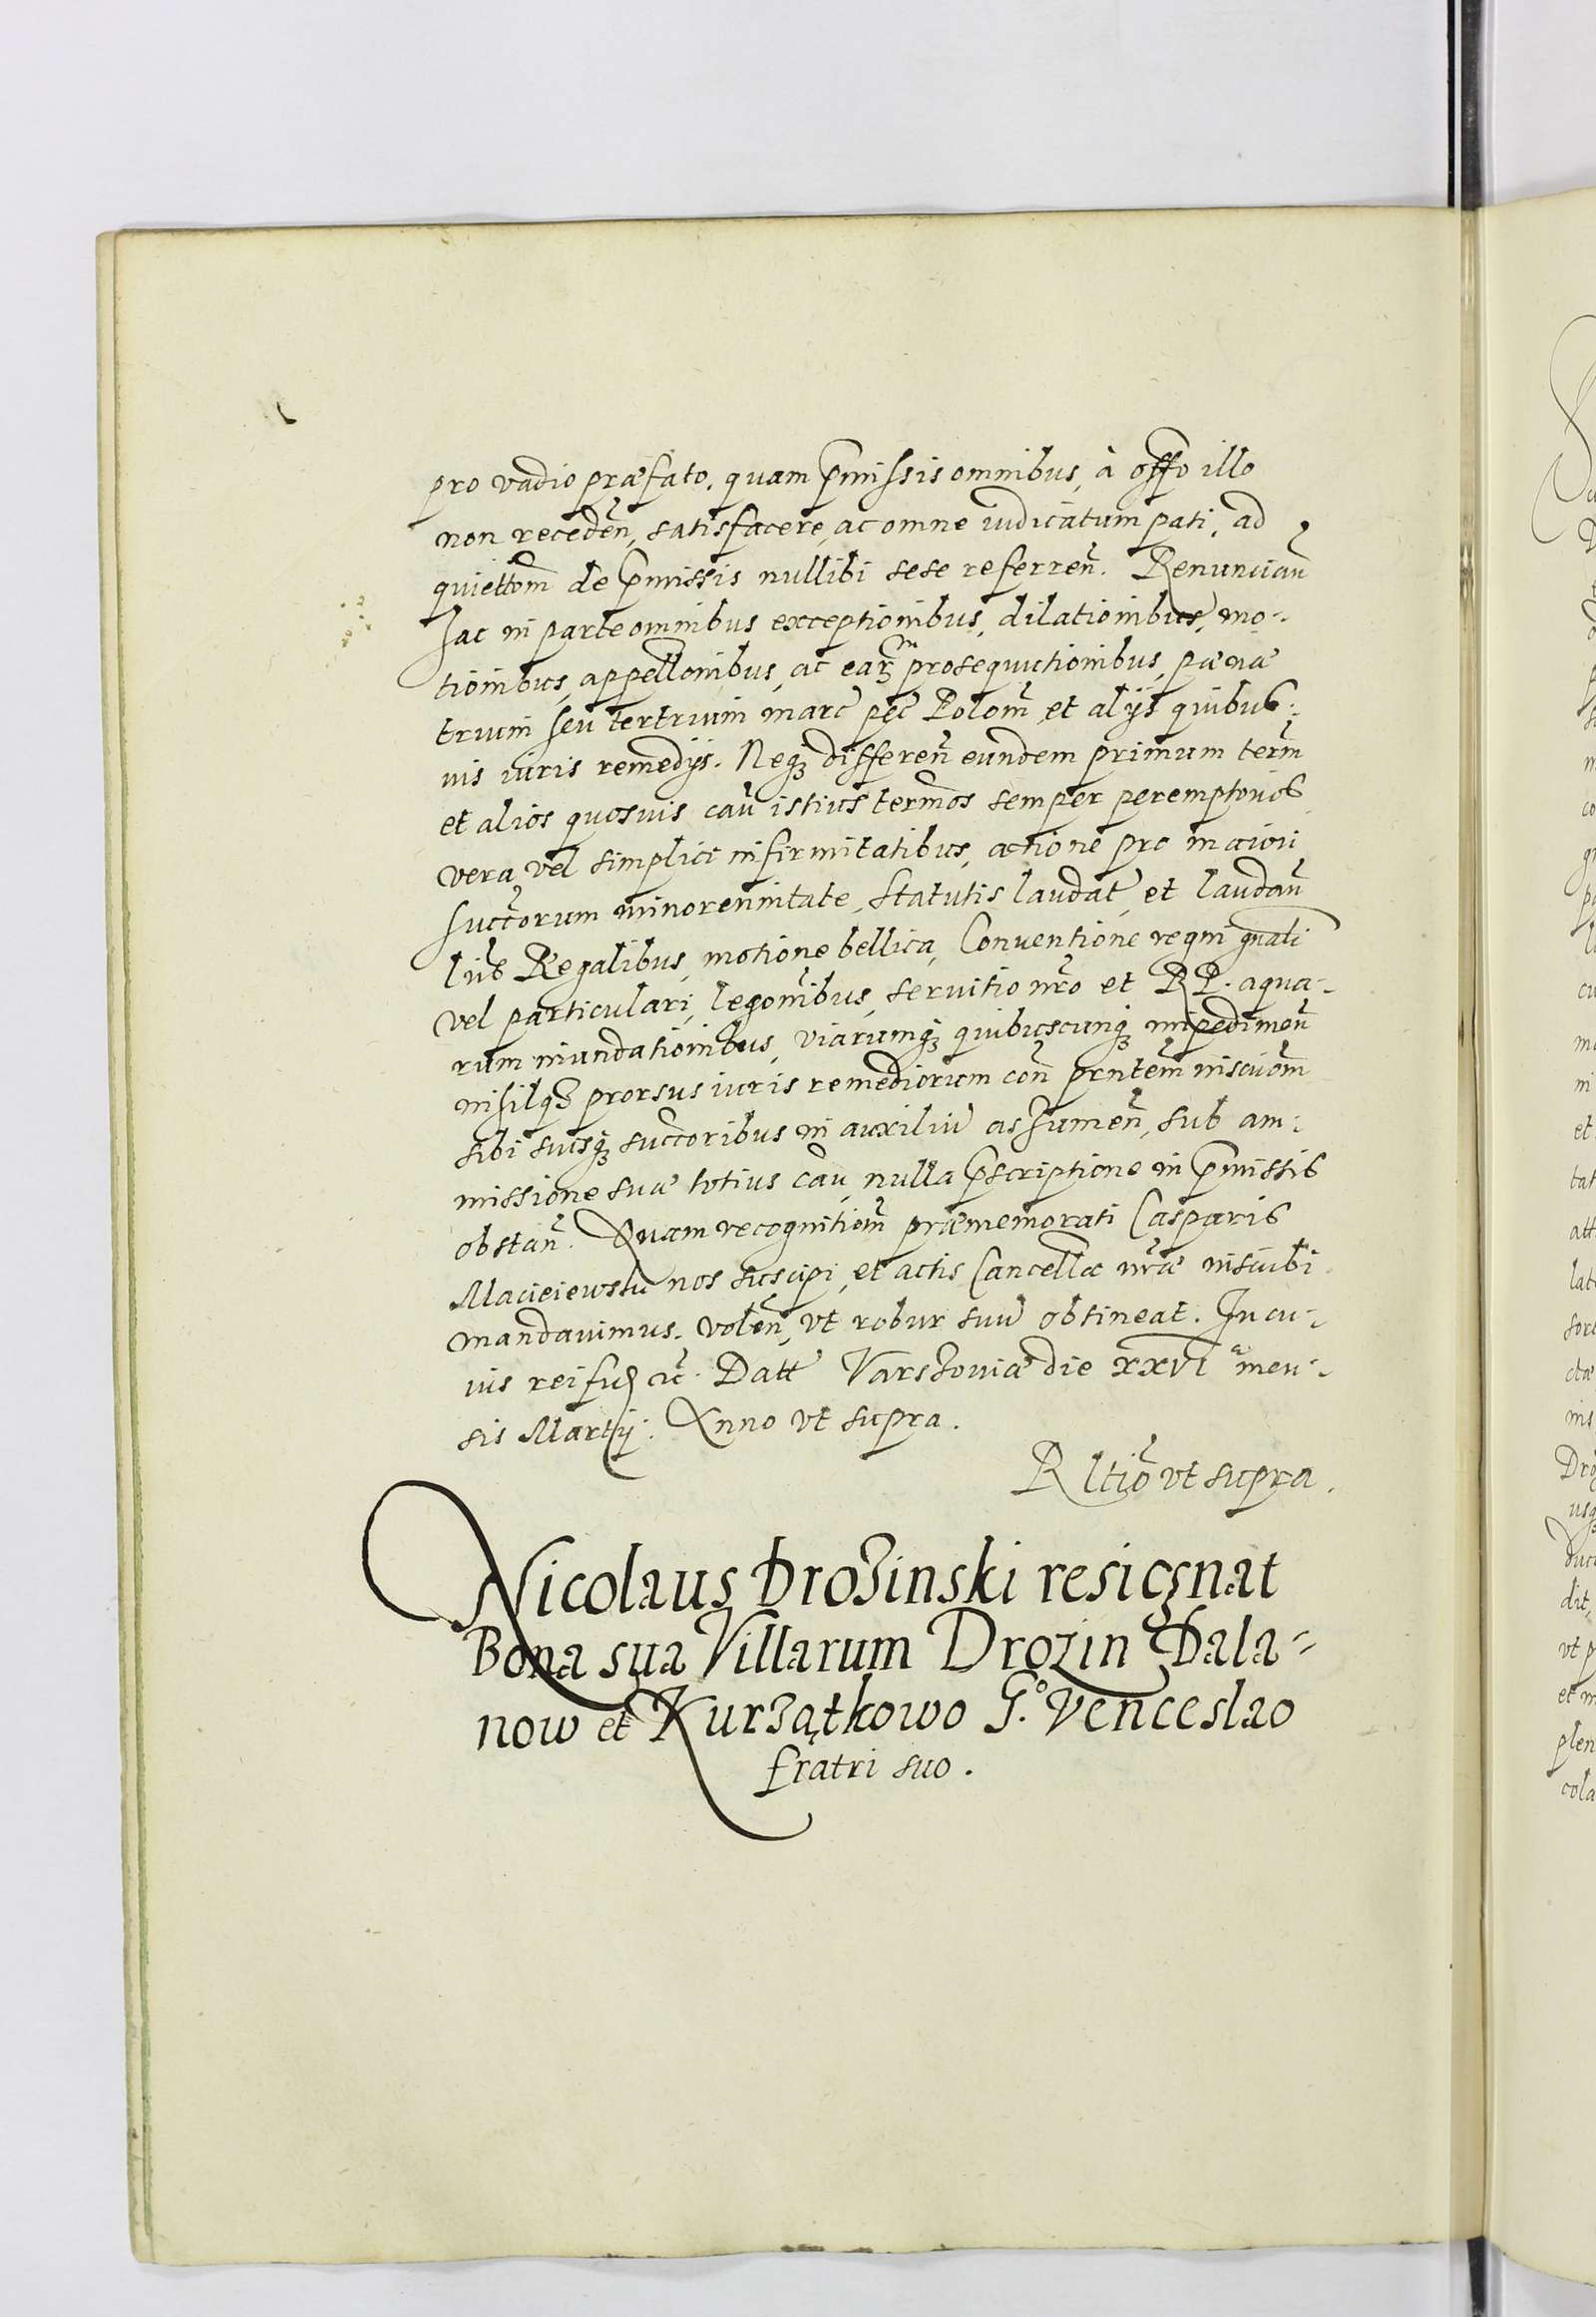 pro vadio præfato, quam p̄missis omnibus, à offo illo
non receden̄, satisfacere, ac omne iudicatum pati, ad
quiettom̄ de p̄missis nullibi sese referren̄. Renuncian̄
hac in parte omnibus exceptionibus, dilationibus, mo-
tionibus, appellonibus, ac ear̄ prosequutionibus, pæna
trium seu tertrium marc̄ pec̄ Polom̄ et alijs quibus-
uis iuris remedijs. Neq₃ differen̄ eundem primum term̄
et alios quosuis cau̅ istius term̄os semper peremptorios
vera, vel simplici infirmitatibus, actione pro maiori
succ̄orum minorennitate, statutis laudat̄, et laudan̄
lib̄s Regalibus, motione bellica, Conuentione regni gn̄ali
vel particulari, legōnibus, seruitio nr̄o et RP. aqua-
rum inundationibus, viarumq₃ quibuscunq₃ impedimen̄
nihilq₃ prorsus iuris remediorum con̄ pn̄tem̄ inscriōm̄
sibi suisq₃ succ̄oribus in auxiliū assumen̄, sub am-
missione suæ totius cau̅, nulla p̄scriptione in p̄missis
obstan̄. Quam recognitiom̄ præmemorati Casparis
Macieiewski nos suscipi, et actis Cancellæ nr̄æ inscribi
mandauimus. volen̄, vt robur suū obtineat. In cu-
uis rei fid̄ etc̄. Datt̄ Varszouiæ die xxvi ᵃ men-
sis Martij. Anno vt supra.
Rltiō vt supra.
Nicolaus Drozinski resignat
Bona sua Villarum Drozin Dala-
now et Kurzątkowo G.º Venceslao
fratri suo.